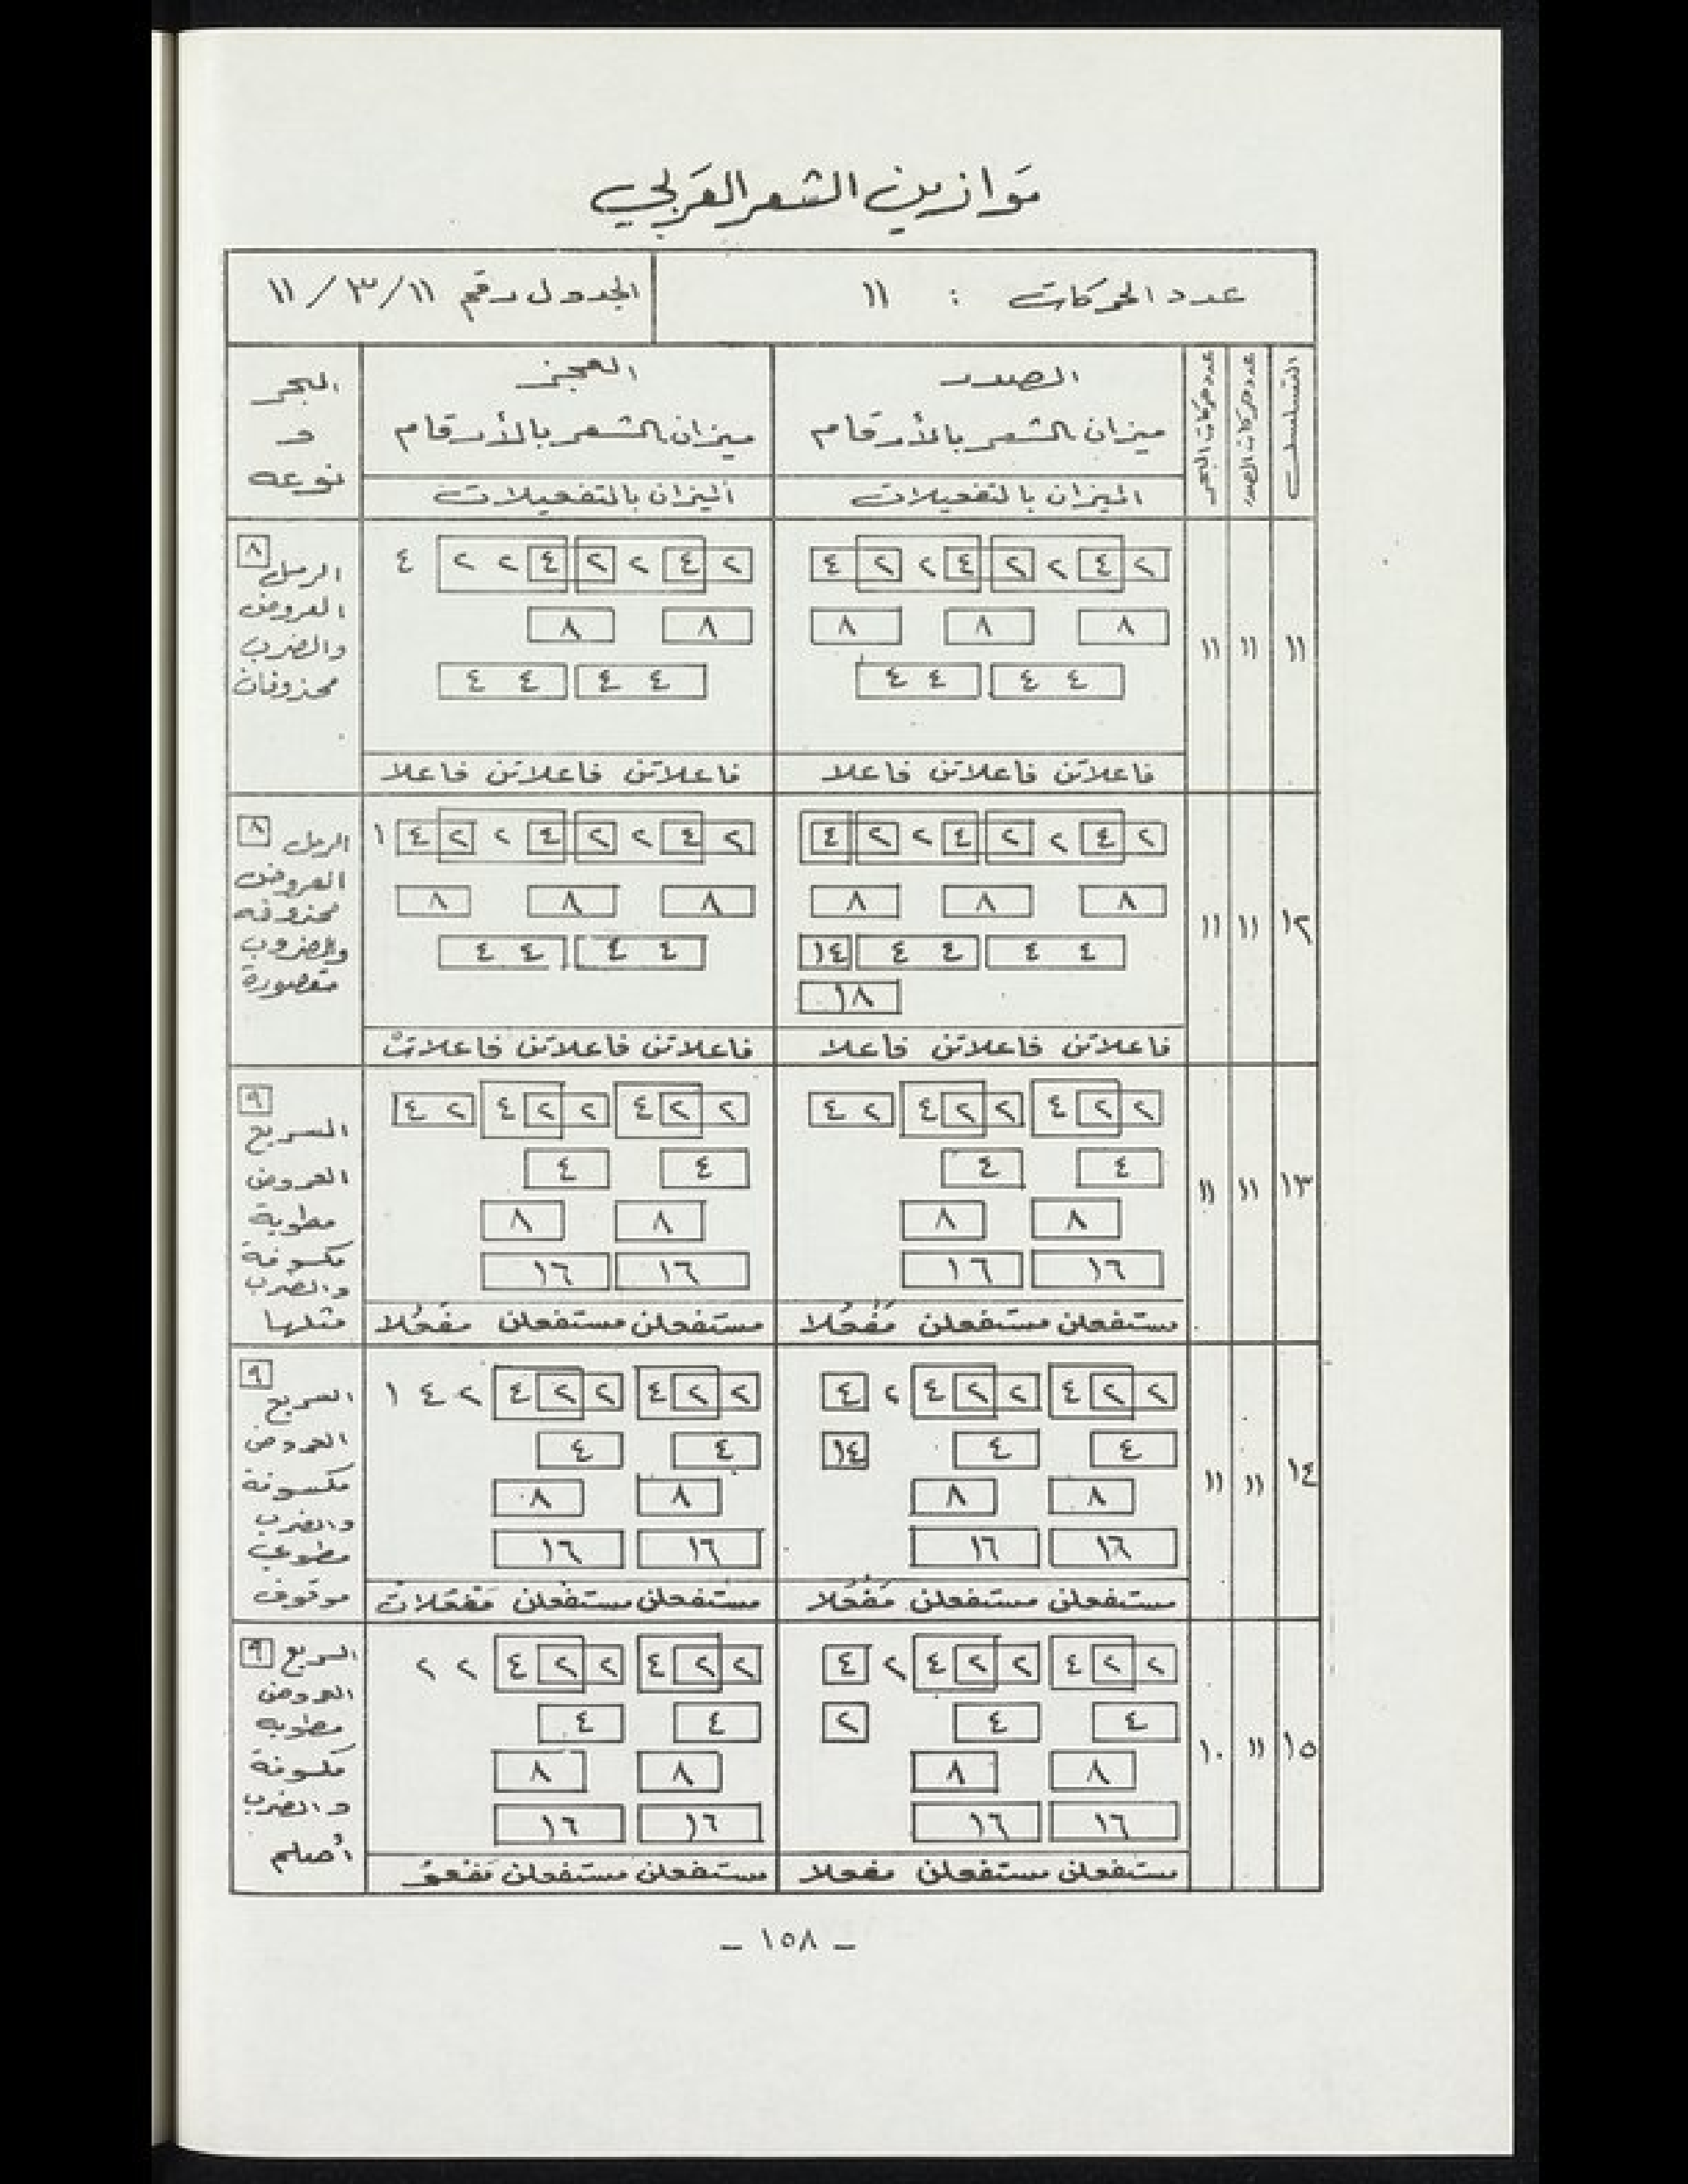 موازين الشعر العربي
عدد الحركات : ١١
الجدول رقم ١١/٣/١١
التسلسل
عدد حركات الصدر
عدد حركات العجز
الصدر
ميزان الشعر بالأرقام
الميزان بالتفعيلات
العجز
ميزان الشعر بالأرقام
الميزان بالتفعيلات
البحر
و
نوعه
١١
١١
١١
٢ ٤ ٢ ٢ ٤ ٢ ٢ ٤
٨ ٨ ٨
٤ ٤ ٤ ٤
فاعلاتن فاعلاتن فاعلا
٢ ٤ ٢ ٢ ٤ ٢ ٢ ٤
٨ ٨
٤ ٤ ٤ ٤
فاعلاتن فاعلاتن فاعلا
٨
الرمل
العروض
والضرب
محذوفان
١٢
١١
١١
٢ ٤ ٢ ٢ ٤ ٢ ٢ ٤
٨ ٨ ٨
٤ ٤ ٤ ٤ ١٤
١٨
فاعلاتن فاعلاتن فاعلا
٢ ٤ ٢ ٢ ٤ ٢ ٢ ٤ ١
٨ ٨ ٨
٤ ٤ ٤ ٤
فاعلاتن فاعلاتن فاعلاتْ
الرمل ٨
العروض
محذوفه
والضروب
مقصورة
١٣
١١
١١
٢ ٢ ٤ ٢ ٢ ٤ ٢ ٤
٤ ٤
٨ ٨
١٦ ١٦
مستفعلن مستفعلن مَفْعُلا
٢ ٢ ٤ ٢ ٢ ٤ ٢ ٤
٤ ٤
٨ ٨
١٦ ١٦
مستفعلن مستفعلن مفعُلا
٩
السريع
العروض
مطوية
مكسوفة
والضرب
مثلها
١٤
١١
١١
٢ ٢ ٤ ٢ ٢ ٤ ٢ ٤
٤ ٤ ١٤
٨ ٨
١٦ ١٦
مستفعلن مستفعلن مَفْعُلا
٢ ٢ ٤ ٢ ٢ ٤ ٢ ٤ ١
٤ ٤
٨ ٨
١٦ ١٦
مستفعلن مستفعلن مَفْعَلاتْ
٩
السريع
العروض
مكسوفة
والضرب
مطوي
موقوف
١٥
١١
١٠
٢ ٢ ٤ ٢ ٢ ٤ ٢ ٤
٤ ٤ ٢
٨ ٨
١٦ ١٦
مستفعلن مستفعلن مفعلا
٢ ٢ ٤ ٢ ٢ ٤ ٢ ٢
٤ ٤
٨ ٨
١٦ ١٦
مستفعلن مستفعلن مَفْعو
السريع ٩
العروض
مطويه
مكسوفة
والضرب
أصلم
– ١٥٨ –